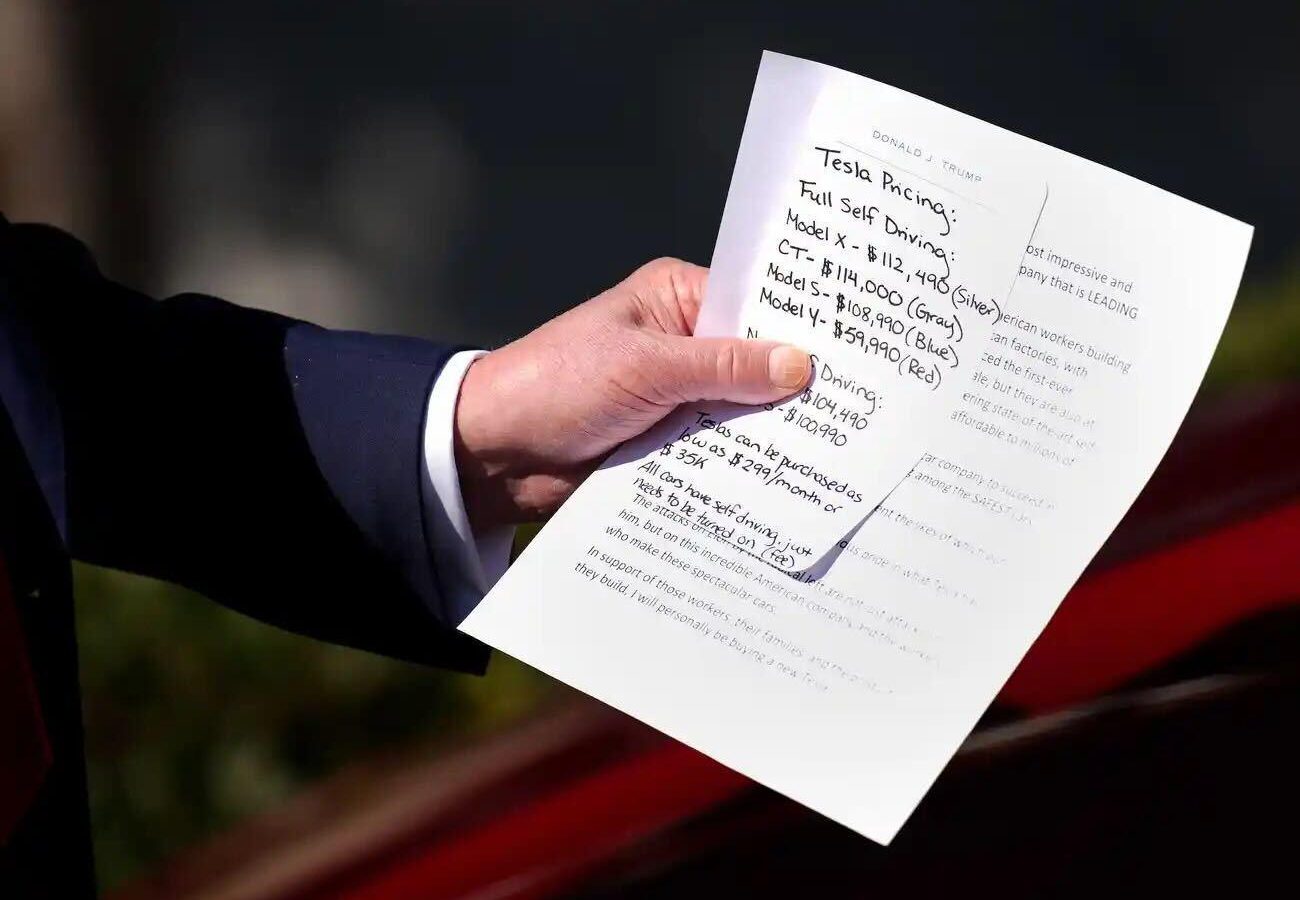 DONALD J. TRUMP
Tesla Pricing:
Full Self Driving:
Model X - $112,490 (Silver)
CT - $114,000 (Gray)
Model S - $108,990 (Blue)
Model Y - $59,990 (Red)
Driving:
$104,490
- $100,990
Teslas can be purchased as
low as $299/month or
$35K
All cars have self driving, just
needs to be turned on (fee)
impressive and
that is LEADING
workers building
factories, with
the first-ever
but they are also at
state-of-the-art self-
affordable to millions of
company to succeed in
among the SAFEST
the likes of which
pride in what Tesla has
The attacks on are not just
him, but on this incredible American company and the workers
who make these spectacular cars.
In support of those workers, their families, and the
they build, I will personally be buying a new Tesla